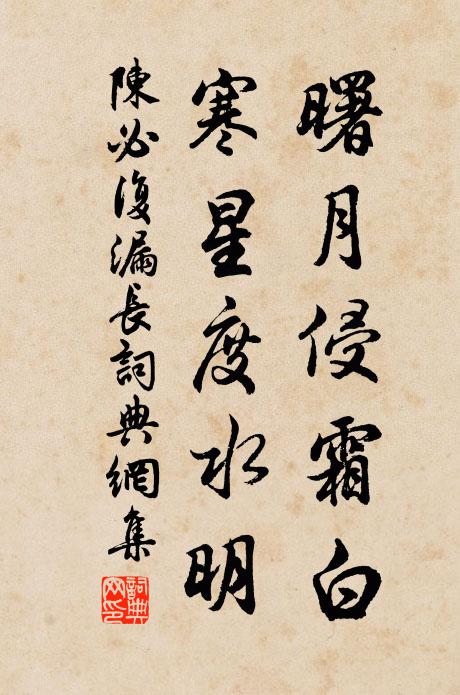 曙月侵霜白
寒星度水明
陳必復漏長詞典網集
詞典網印